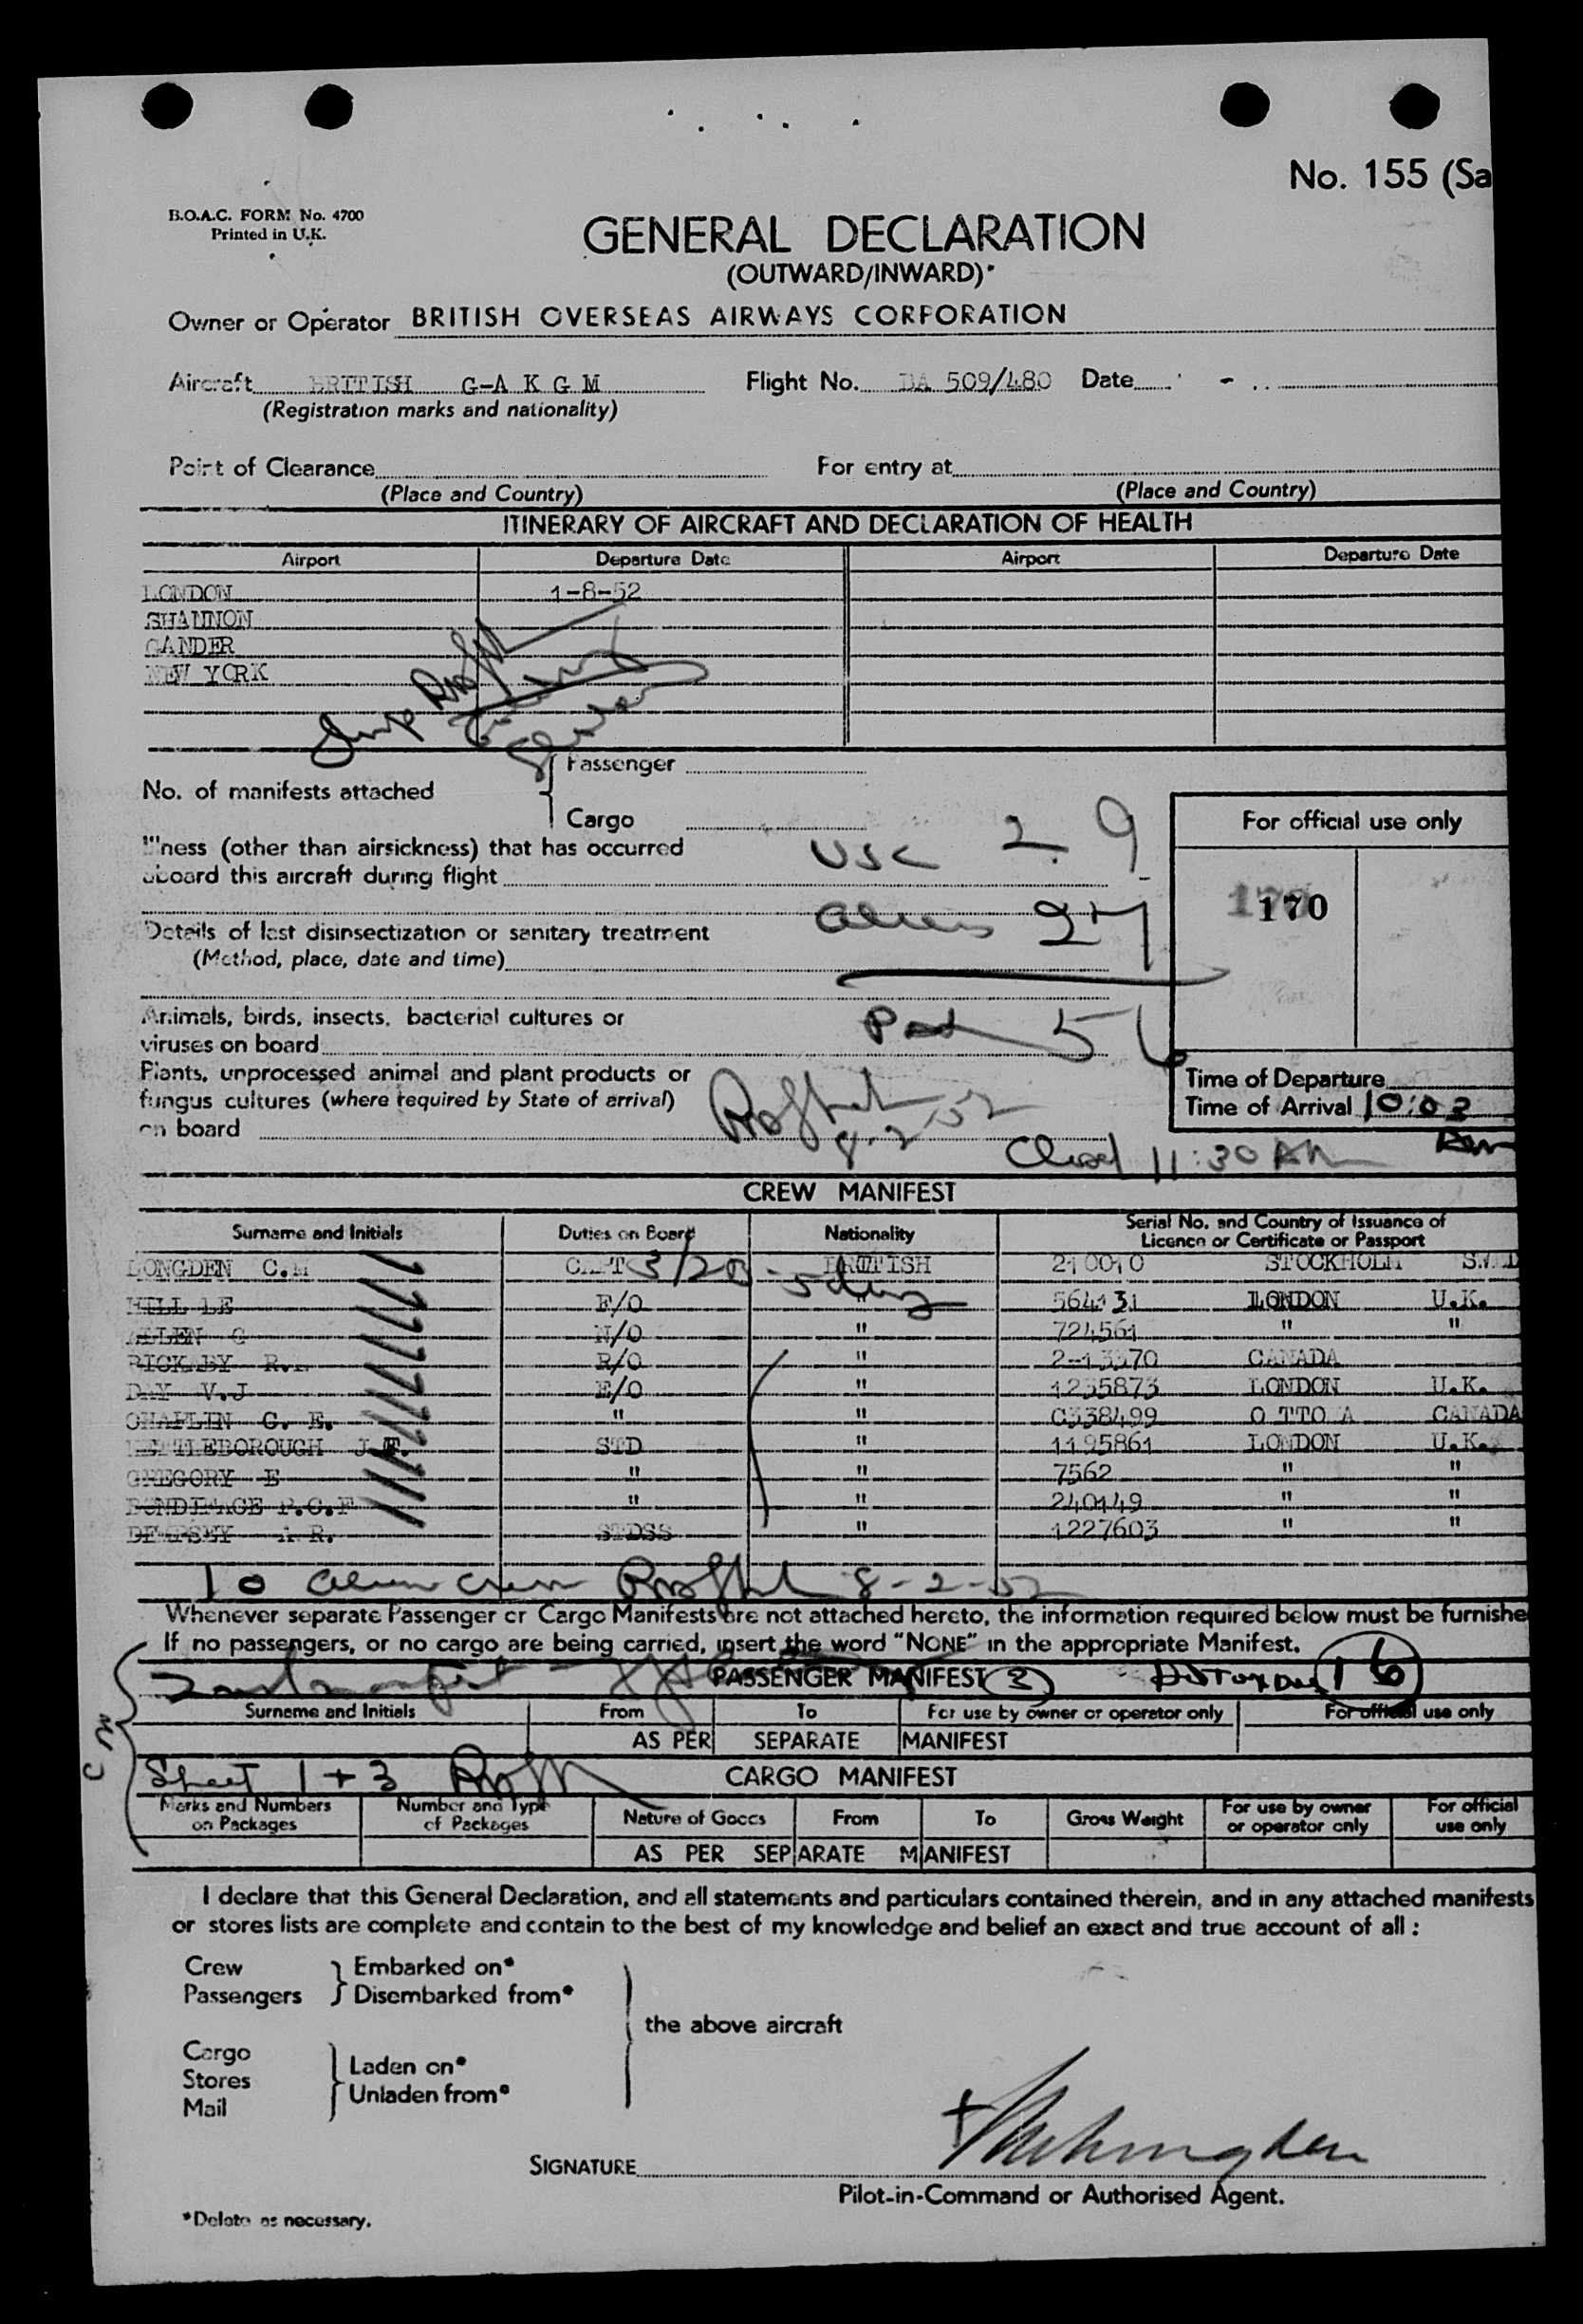 No. 155 (Sa
B.O.A.C. FORM No. 4700
Printed in U.K.
GENERAL DECLARATION
(OUTWARD/INWARD)*
Owner or Operator BRITISH OVERSEAS AIRWAYS CORPORATION
Aircraft BRITISH G-A K G M Flight No. BA 509/480 Date
(Registration marks and nationality)
Point of Clearance For entry at
(Place and Country) (Place and Country)
ITINERARY OF AIRCRAFT AND DECLARATION OF HEALTH
Airport Departure Date Airport Departure Date
LONDON 1-8-52
SHANNON
GANDER
NEW YORK
Passenger
No. of manifests attached
Cargo
For official use only
Illness (other than airsickness) that has occurred
aboard this aircraft during flight
USC 29
170
Details of last disinsectization or sanitary treatment
aliens 27
(Method, place, date and time)
Animals, birds, insects, bacterial cultures or
viruses on board
56
Plants, unprocessed animal and plant products or
fungus cultures (where required by State of arrival)
on board
8-2-52
Time of Departure
Time of Arrival 10:03
Closed 11:30 AM
CREW MANIFEST
Surname and Initials Duties on Board Nationality Serial No. and Country of Issuance of
Licence or Certificate or Passport
LONGDEN C.M CAPT 3/20 BRITISH 210010 STOCKHOLM
HILL LE F/O " 564131 LONDON U.K.
ALLEN G N/O " 724561 " "
RICKABY R. R/O " CANADA
DAY V.J E/O " 1235873 LONDON U.K.
CHAPLIN G. E. " " C338499 OTTOWA CANADA
KETTLEBOROUGH J STD " 1195861 LONDON U.K.
GREGORY E " " 7562 " "
P.C.F " " 240149 " "
DEMPSEY A R. STDSS " 1227603 " "
10 alien crew 8-2-52
Whenever separate Passenger or Cargo Manifests are not attached hereto, the information required below must be furnishe
If no passengers, or no cargo are being carried, insert the word "NONE" in the appropriate Manifest.
PASSENGER MANIFEST (3) 16
Surname and Initials From To For use by owner or operator only For official use only
AS PER SEPARATE MANIFEST
Sheet 1 + 3
CARGO MANIFEST
Marks and Numbers on Packages Number and Type of Packages Nature of Goods From To Gross Weight For use by owner or operator only For official use only
AS PER SEPARATE MANIFEST
I declare that this General Declaration, and all statements and particulars contained therein, and in any attached manifests
or stores lists are complete and contain to the best of my knowledge and belief an exact and true account of all :
Crew Embarked on*
Passengers Disembarked from*
the above aircraft
Cargo
Stores Laden on*
Mail Unladen from*
SIGNATURE
Pilot-in-Command or Authorised Agent.
*Delete as necessary.